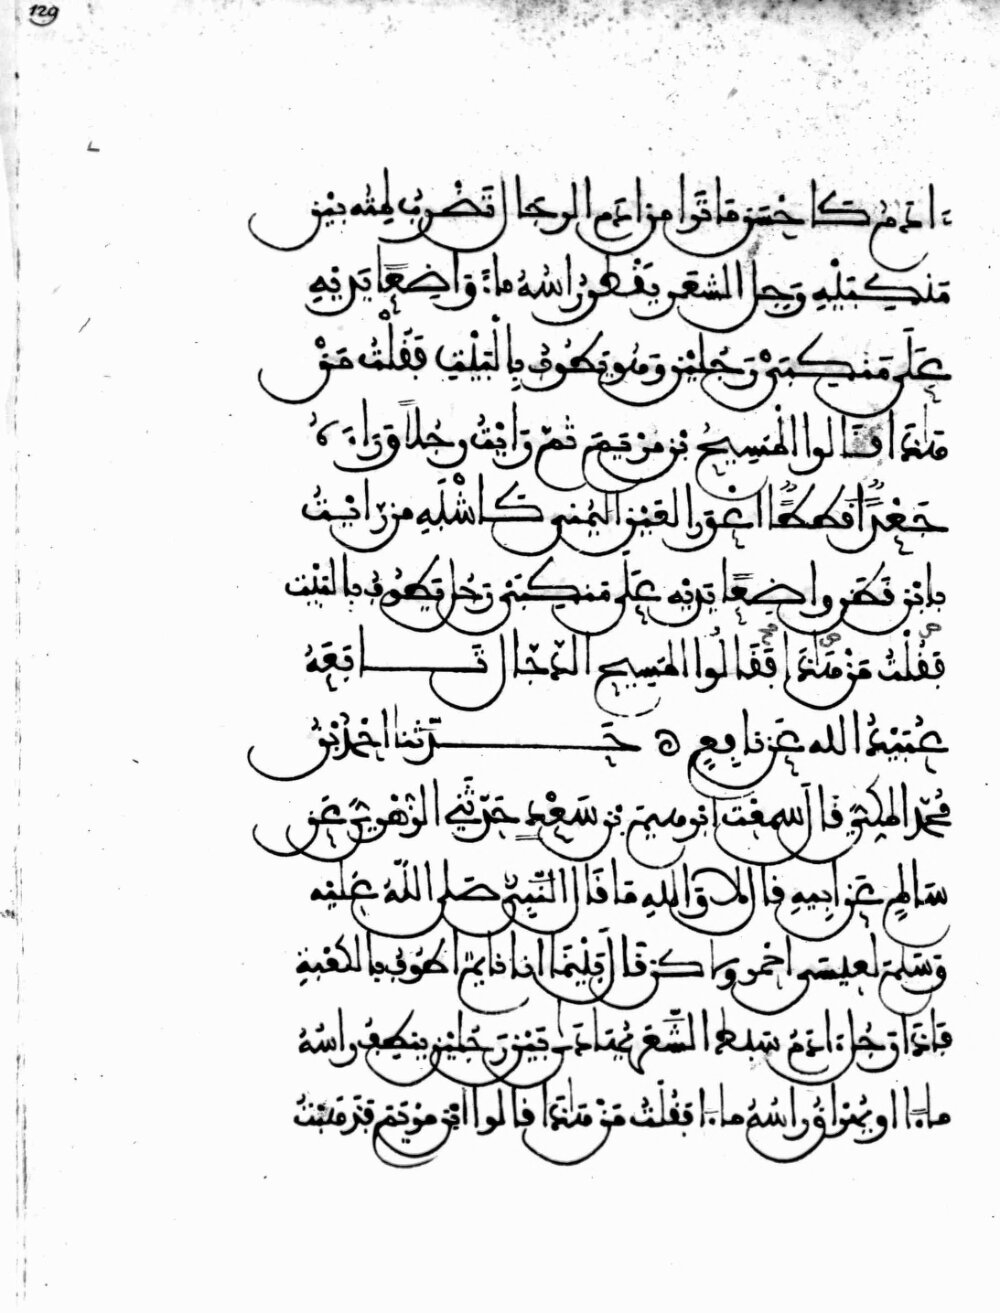 129
ءادم كاحسن ما ترا من ادم الرجال تضرب لمته بين
منكبيه رجل الشعر يقطر راسه ماء واضعا يديه
على منكبي رجلين وهو يطوف بالبيت فقلت من
هذا فقالوا المسيح بن مريم ثم رايت رجلا وراءه
جعدا قططا اعور العين اليمنى كاشبه من رايت
بابن قطن واضعا يديه على منكبي رجل يطوف بالبيت
فقلت من هذا فقالوا المسيح الدجال تابعه
عبيد الله عن نافع ه حدثنا احمد بن
محمد المكي قال سمعت ابرهيم بن سعد حدثني الزهري عن
سالم عن ابيه قال لا والله ما قال النبي صلى الله عليه
وسلم لعيسى احمر ولكن قال بينما انا نايم اطوف بالكعبة
فاذا رجل ءادم سبط الشعر يهادى بين رجلين ينطف راسه
ماءا او يهراق راسه ماءا فقلت من هذا قالوا ابن مريم فذهبت